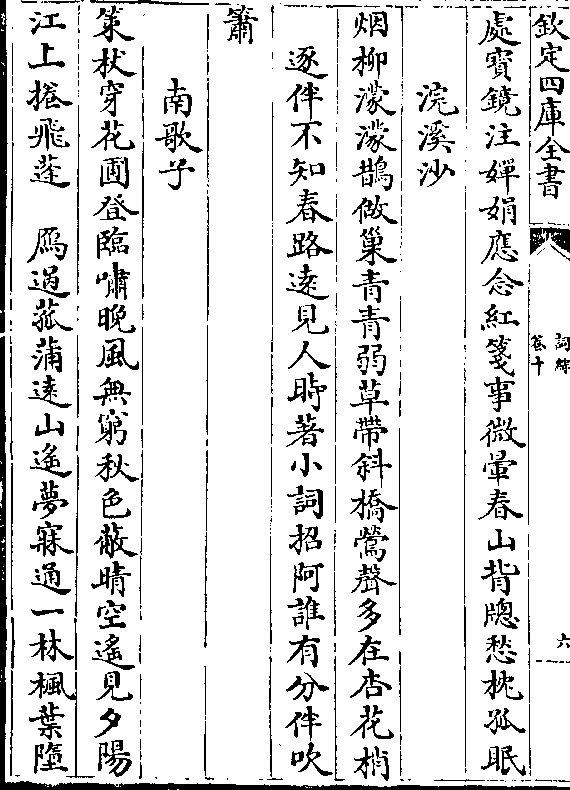 欽定四庫全書
詞綜
卷十
六
處寳鏡注嬋娟應念紅箋事微暈春山背牕愁枕孤眠
浣溪沙
烟柳濛濛鵲做巢青青弱草帶斜橋鶯聲多在杏花梢
逐伴不知春路逺見人時著小詞招阿誰有分伴吹
簫
南歌子
策杖穿花圃登臨嘯晩風無窮秋色蔽晴空遥見夕陽
江上捲飛蓬　鴈過菰蒲逺山遥夢寐通一林楓葉墮